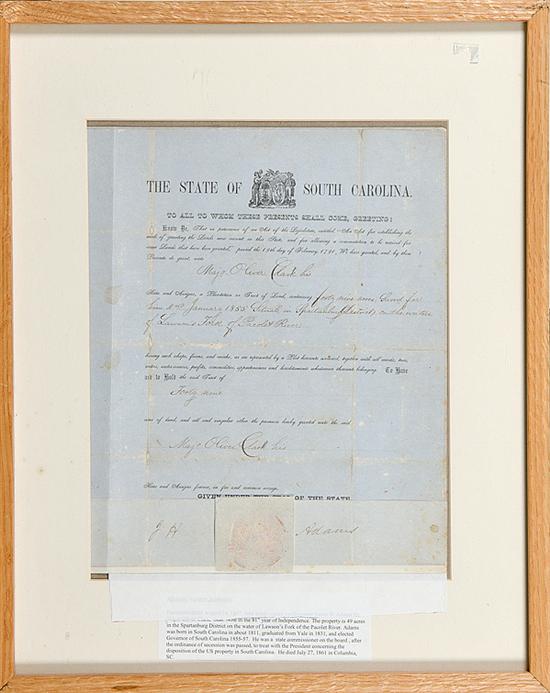 THE STATE OF SOUTH CAROLINA.
TO ALL TO WHOM THESE PRESENTS SHALL COME, GREETING:
Know Ye, That in pursuance of an Act of the Legislature, entitled "An Act for establishing the
mode of granting the Lands now vacant in this State, and for allowing a commutation to be received for
some Lands that have been granted," passed the 19th day of February, 1791, We have granted, and by these
Presents do grant, unto
Majr. Oliver Clark his
Heirs and Assigns, a Plantation or Tract of Land, containing forty nine acres, Survd for
him January 1855 Situate in Spartanburg District, on the waters
of Lawsons Fork of Pacolet River
having such shape, form, and marks, as are represented by a Plat hereunto annexed, together with all woods, trees,
waters, water-courses, profits, commodities, appurtenances and hereditaments whatsoever thereunto belonging. To Have
and to Hold the said Tract of
Forty nine
acres of land, and all and singular other the premises hereby granted unto the said
Majr. Oliver Clark his
Heirs and Assigns forever, in fee and common socage.
GIVEN UNDER THE SEAL OF THE STATE
J H Adams
year of Independence. The property is 49 acres
in the Spartanburg District on the water of Lawson's Fork of the Pacolet River. Adams
was born in South Carolina in about 1811, graduated from Yale in 1831, and elected
Governor of South Carolina 1855-57. He was a state commissioner on the board, after
the ordinance of secession was passed, to treat with the President concerning the
disposition of the US property in South Carolina. He died July 27, 1861 in Columbia,
SC.